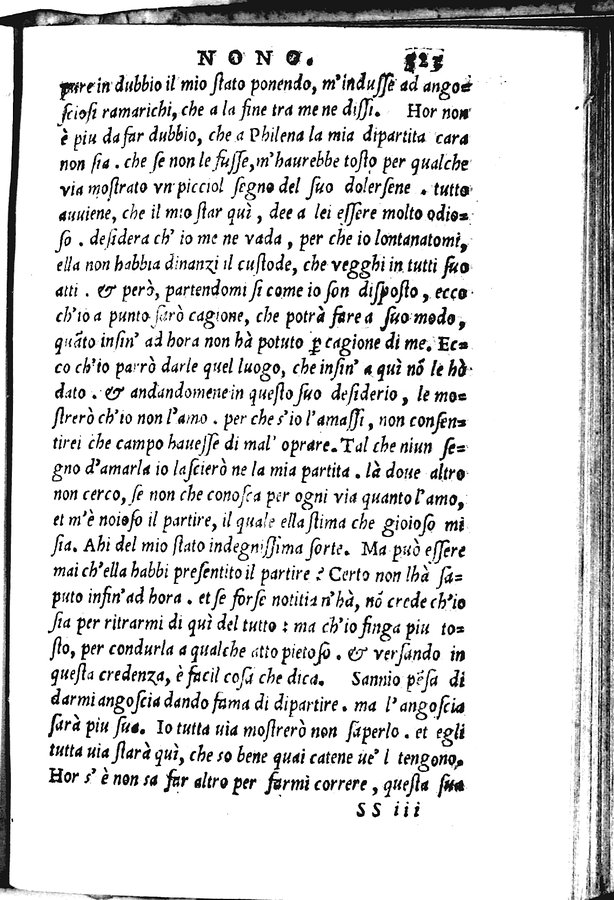 NONO. 523
pure in dubbio il mio ſtato ponendo, m'induſſe ad ango=
ſcioſi ramarichi, che a la fine tra me ne diſſi. Hor non
è piu da far dubbio, che a Philena la mia dipartita cara
non ſia . che ſe non le fuſſe, m'haurebbe toſto per qualche
via moſtrato vn picciol ſegno del ſuo dolerſene . tutto
auuiene, che il mio ſtar quì , dee a lei eſſere molto odio=
ſo . deſidera ch' io me ne vada , per che io lontanatomi,
ella non habbia dinanzi il cuſtode, che vegghi in tutti ſuo
atti . & però, partendomi ſi come io ſon diſpoſto , ecco
ch'io a punto ſarò cagione, che potrà fare a ſuo modo,
quāto inſin' ad hora non hà potuto ꝑ cagione di me. Ec=
co ch'io parrò darle quel luogo, che inſin' a quì nō le hò
dato . & andandomene in queſto ſuo deſiderio , le mo=
ſtrerò ch'io non l'amo . per che s'io l'amaſſi , non conſen=
tirei che campo haueſſe di mal' oprare. Tal che niun ſe=
gno d'amarla io laſcierò ne la mia partita . là doue altro
non cerco, ſe non che conoſca per ogni via quanto l'amo,
et m'è noioſo il partire, il quale ella ſtima che gioioſo mi
ſia. Ahi del mio ſtato indegniſſima ſorte. Ma può eſſere
mai ch'ella habbi preſentito il partire ? Certo non lhà ſa=
puto infin' ad hora . et ſe forſe notitia n'hà, nō crede ch'io
ſia per ritrarmi di quì del tutto : ma ch'io finga piu to=
ſto, per condurla a qualche atto pietoſo . & verſando in
queſta credenza, è facil coſa che dica. Sannio pēſa di
darmi angoſcia dando fama di dipartire . ma l'angoſcia
ſarà piu ſua. Io tutta uia moſtrerò non ſaperlo . et egli
tutta uia ſtarà quì, che so bene quai catene ue' l tengono.
Hor s' è non sa far altro per farmi correre , queſta ſua
SS iii